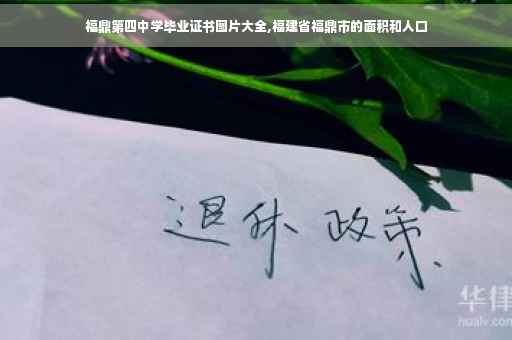 福鼎第四中学毕业证书图片大全,福建省福鼎市的面积和人口
退休 政策
华律
hualv.com